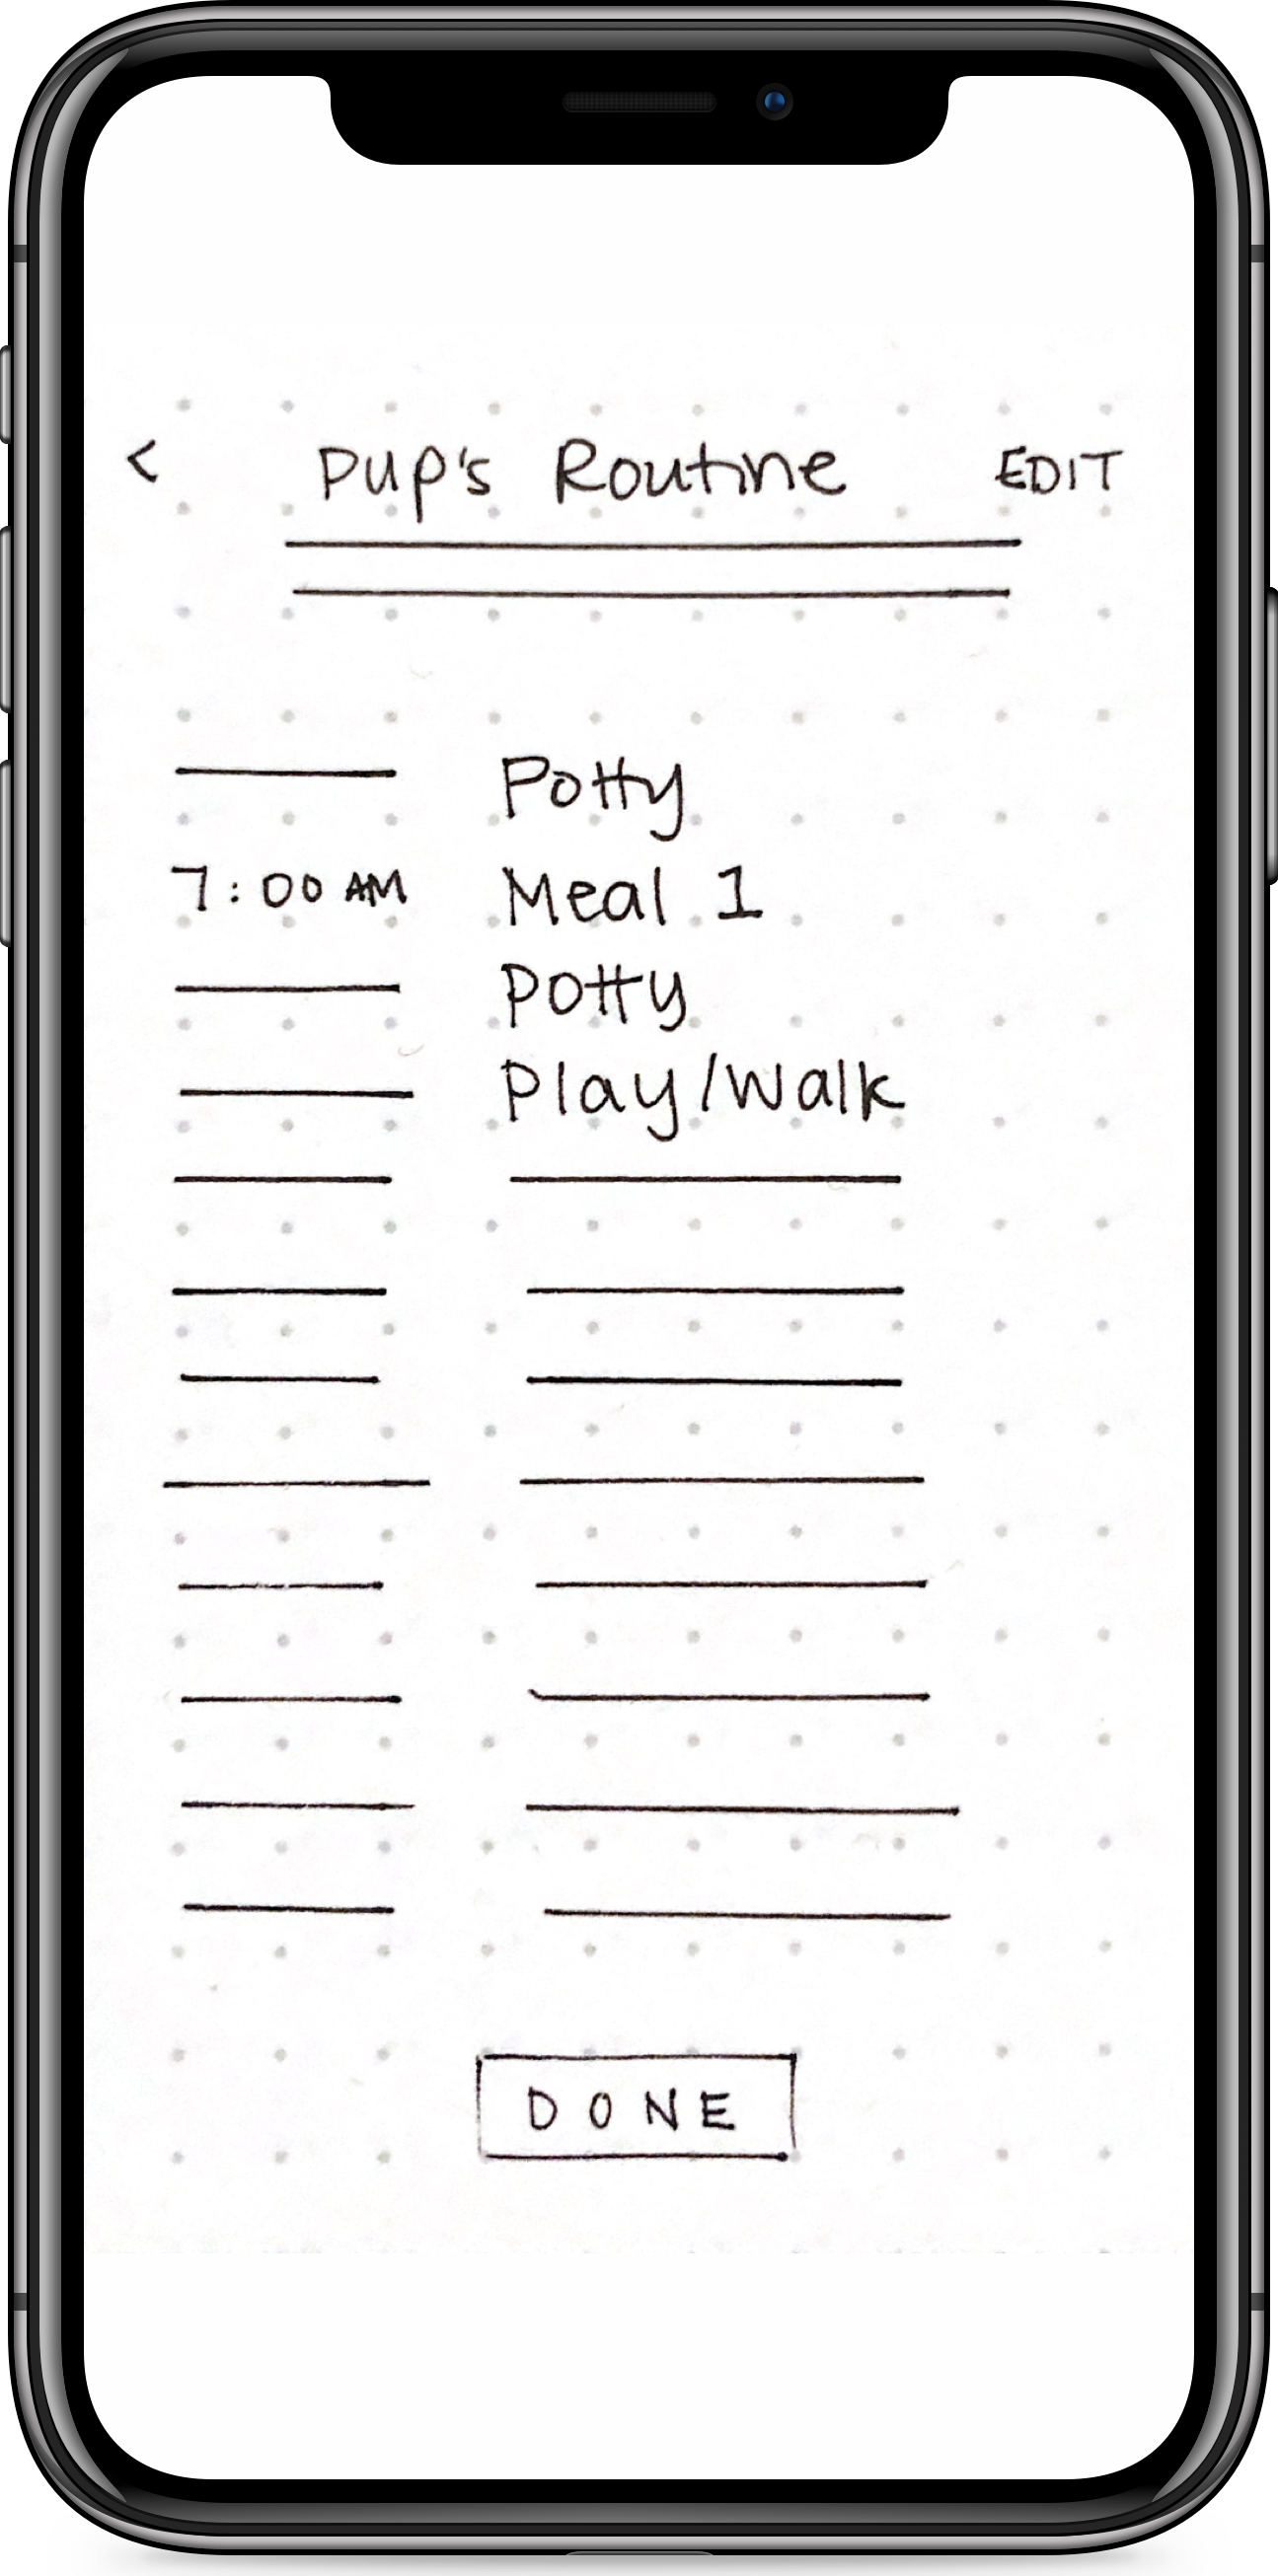 < Pup's Routine EDIT
Potty
7:00 AM Meal 1
Potty
Play/Walk
DONE